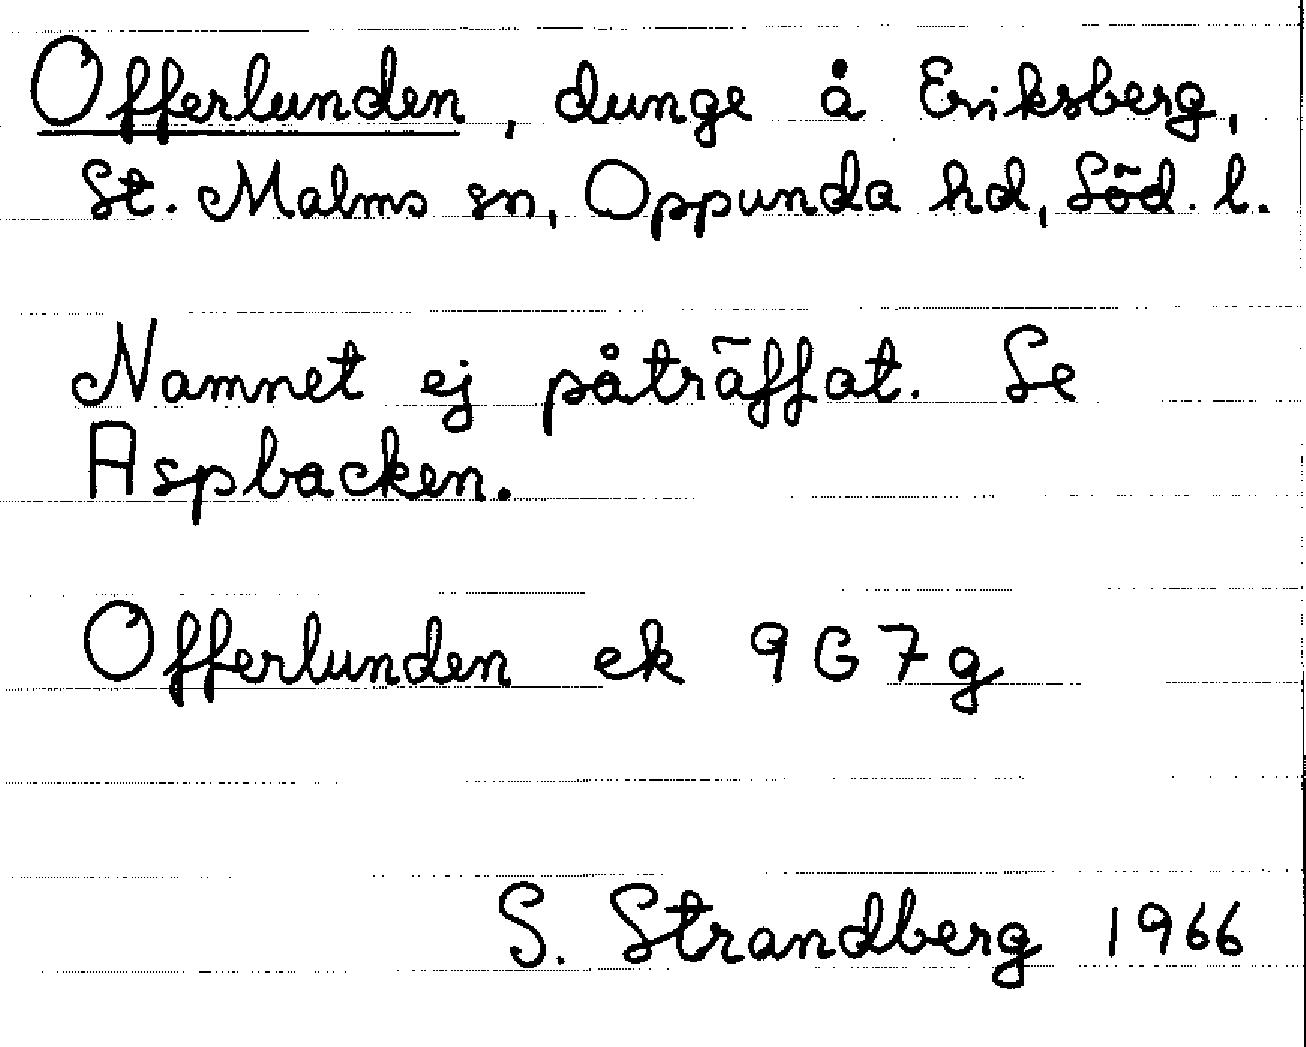 Offerlunden, dunge å Eriksberg,
St. Malms sn, Oppunda hd, Söd. l.
Namnet ej påträffat. Se
Aspbacken.
Offerlunden ek 9G7g
S. Strandberg 1966